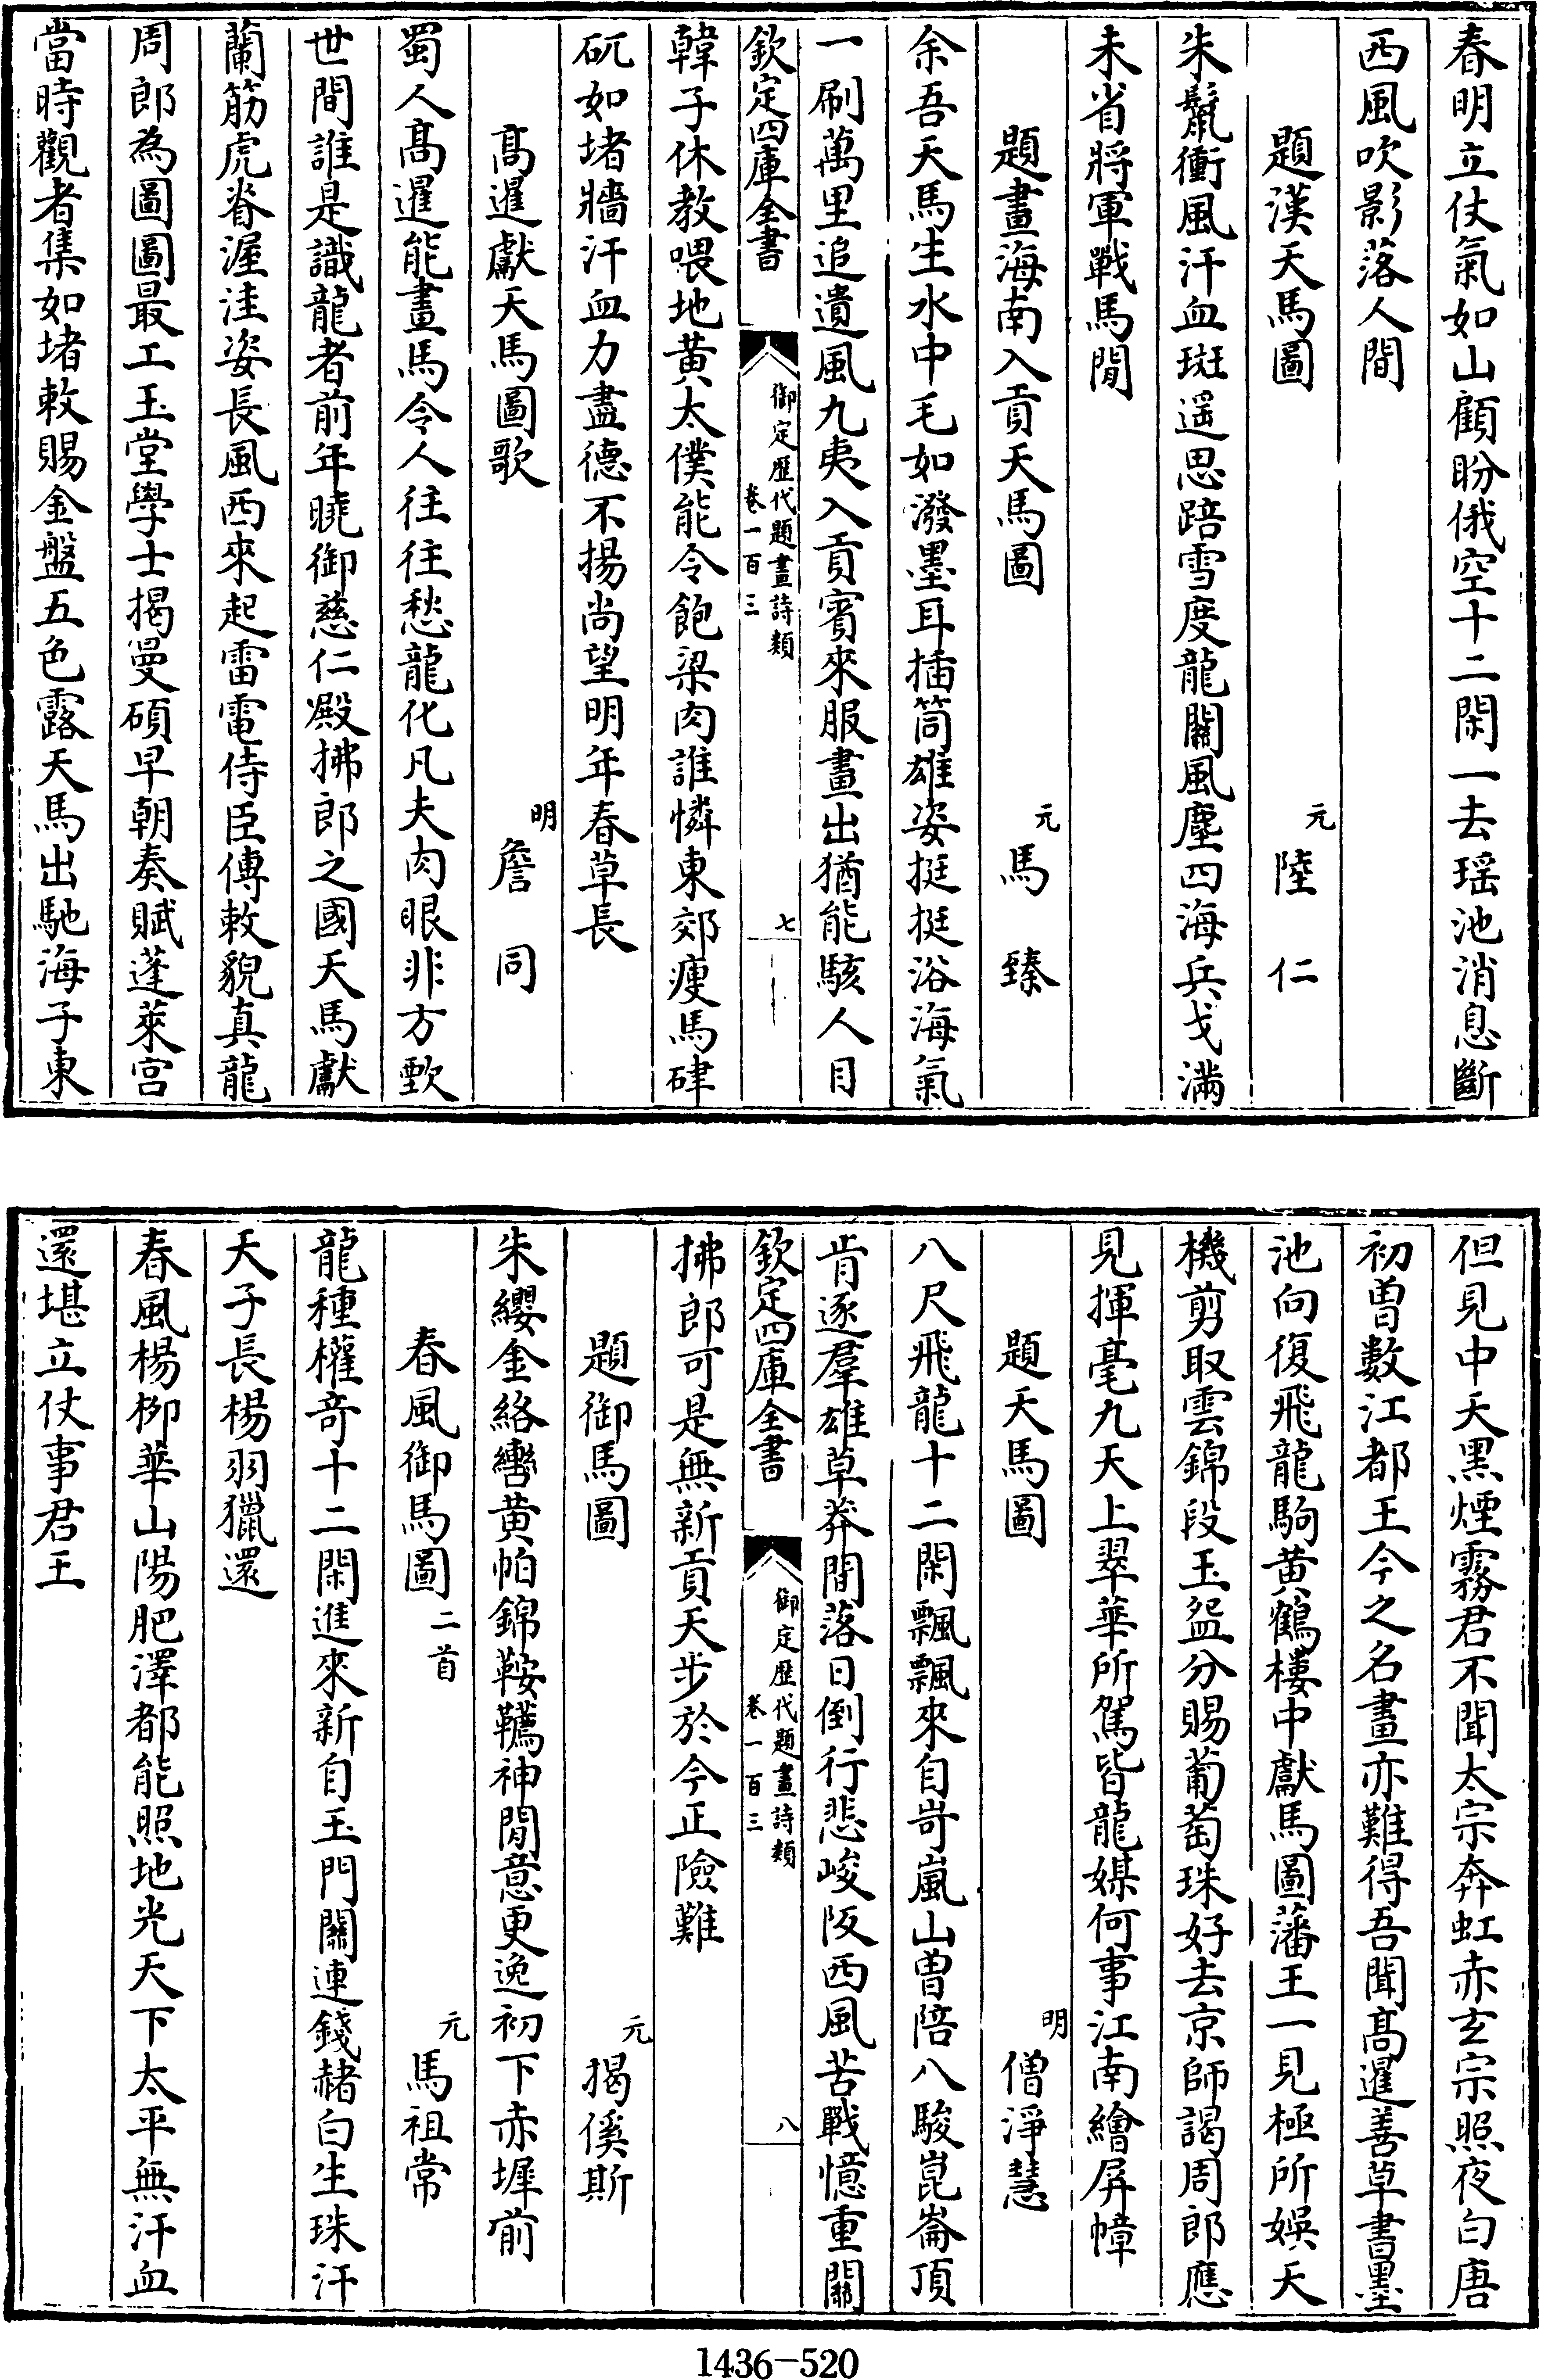 春明立仗氣如山顧盼俄空十二閑一去瑶池消息斷
西風吹影落人間
題漢天馬圖 元 陸仁
朱鬛衝風汗血斑遥思踣雪度龍闗風塵四海兵戈滿
未省將軍戰馬閒
題畫海南入貢天馬圖 元 馬臻
余吾天馬生水中毛如潑墨耳插筒雄姿挺挺浴海氣
一刷萬里追遺風九夷入貢賓來服畫出猶能駭人目
欽定四庫全書 御定歴代題畫詩類 卷一百三 七
韓子休教喂地黄太僕能令飽粱肉誰憐東郊瘦馬硉
矹如堵牆汗血力盡德不揚尚望明年春草長
髙暹獻天馬圖歌 明 詹同
蜀人髙暹能畫馬令人往往愁龍化凡夫肉眼非方甄
世間誰是識龍者前年曉御慈仁殿拂郎之國天馬獻
蘭筋虎脊渥洼姿長風西來起雷電侍臣傳敕貌真龍
周郎為圖圖最工玉堂學士揭曼碩早朝奏賦蓬萊宫
當時觀者集如堵敕賜金盤五色露天馬出馳海子東
但見中天黑煙霧君不聞太宗奔虹赤玄宗照夜白唐
初曽數江都王今之名畫亦難得吾聞髙暹善草書墨
池向復飛龍駒黄鶴樓中獻馬圖藩王一見極所娛天
機剪取雲錦段玉盌分賜葡萄珠好去京師謁周郎應
見揮毫九天上翠華所駕皆龍媒何事江南繪屏幛
題天馬圖 明 僧淨慧
八尺飛龍十二閑飄飄來自岢嵐山曽陪八駿崑崙頂
肯逐羣雄草莽間落日倒行悲峻阪西風苦戰憶重闗
欽定四庫全書 御定歴代題畫詩類 卷一百三 八
拂郎可是無新貢天步於今正險難
題御馬圖 元 揭傒斯
朱纓金絡轡黄帕錦鞍韉神閒意更逸初下赤墀前
春風御馬圖二首 元 馬祖常
龍種權竒十二閑進來新自玉門闗連錢赭白生珠汗
天子長楊羽獵還
春風楊栁華山陽肥澤都能照地光天下太平無汗血
還堪立仗事君王
1436-520